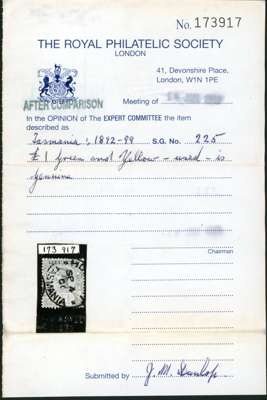 No. 173917
THE ROYAL PHILATELIC SOCIETY
LONDON
41, Devonshire Place,
London, W1N 1PE
AFTER COMPARISON
Meeting of
In the OPINION of The EXPERT COMMITTEE the item
described as
Tasmania : 1892-99 S.G. No. 225
£1 green and yellow - used - is
genuine
Chairman
173 917
Submitted by J. M. Dunlop